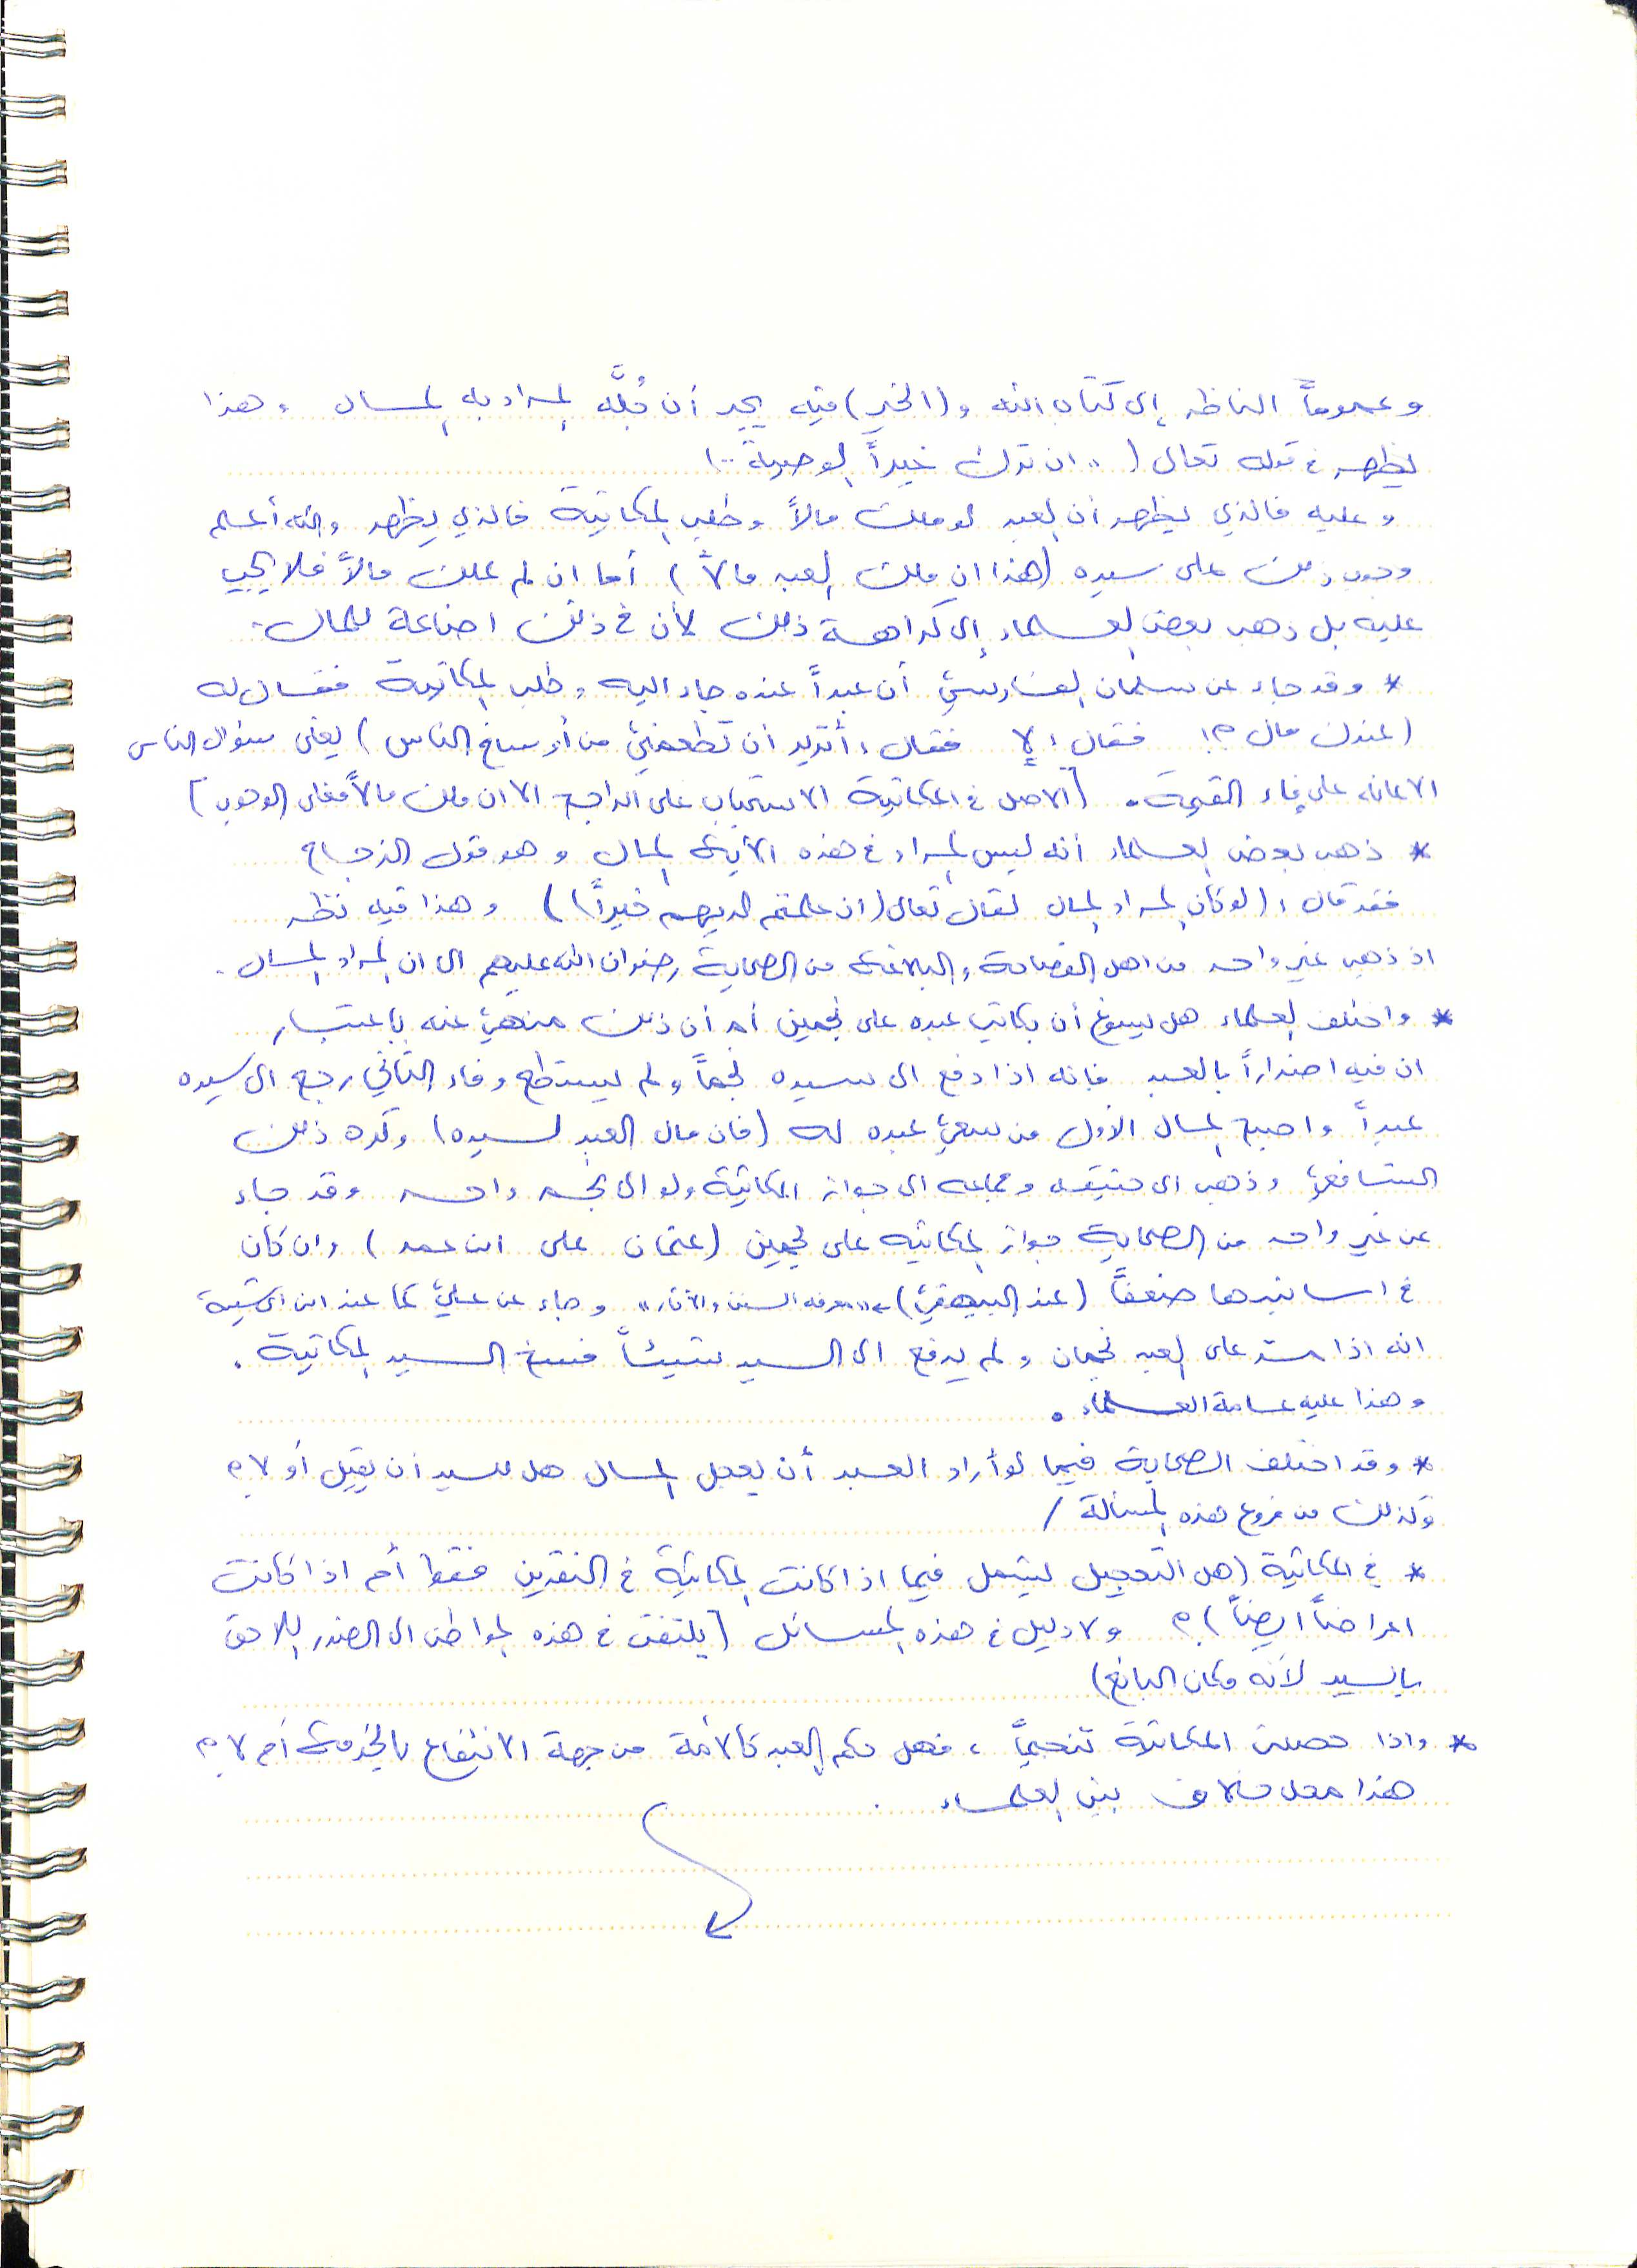 وعموماً الناظر إلى كتاب الله و(الخير) فيه يجد أن جُلَّه المراد به المال وهذا
يظهر في قوله تعالى (.. ان ترك خيراً الوصية ..)
وعليه فالذي يظهر أن العبد لو ملك مالاً وطلب المكاتبة فالذي يظهر والله أعلم
وجوب ذلك على سيده (هذا ان ملك العبد مالاً) أما ان لم يملك مالاً فلا يجب
عليه بل ذهب بعض العلماء إلى كراهة ذلك لأن في ذلك اضاعة للمال.
* وقد جاء عن سلمان الفارسي أن عبداً عنده جاء اليه وطلب المكاتبة فقال له
(عندك مال ؟! فقال: لا فقال: أتريد أن تطعمني من أوساخ الناس) يعني سؤال الناس
الاعانه على القيمة. [الاصل في المكاتبة الاستحباب على الراجح الا ان ملك مالاً فعلى الوجوب]
* ذهب بعض العلماء أنه ليس المراد في هذه الآية المال وهو قول الزجاج
فقد قال: (لو كان المراد المال لقال تعالى (ان علمتم لديهم خيراً)) وهذا فيه نظر
اذ ذهب غير واحد من اهل الفصاحة والبلاغة من الصحابة رضوان الله عليهم الى ان المراد المال.
* واختلف العلماء هل يسوغ أن يكاتب عبده على نجمين أم أن ذلك منهي عنه باعتبار
ان فيه اضراراً بالعبد فإنه اذا دفع الى سيده نجماً ولم يستطع وفاء الثاني رجع الى سيده
عبداً واصبح المال الأول من سعي عبده له (فان مال العبد لسيده) وكره ذلك
الشافعي وذهب ابى حنيفه وجماعه الى جواز المكاتبة ولو الى نجم واحد وقد جاء
عن غير واحد من الصحابة جواز المكاتبه على نجمين (عثمان علي ابن عمر) وان كان
في اسانيدها ضعفاً (عند البيهقي) في "معرفه السنن والآثار" وجاء عن علي كما عند ابن ابي شيبة
انه اذا مر على العبد نجمان ولم يدفع الى السيد شيئاً فسخ السيد المكاتبة.
وهذا عليه عامة العلماء.
* وقد اختلف الصحابة فيما لو أراد العبد أن يعجل المال هل للسيد أن يقبل أو لا ؟
وكذلك من فروع هذه المسألة /
* في المكاتبة (هل التعجيل يشمل فيما اذا كانت المكاتبة في النقدين فقط أم اذا كانت
اعراضاً ايضاً) ؟ ولا دليل في هذه المسائل [يلتفت في هذه المواطن الى الضرر اللاحق
بالسيد لأنه مكان البائع)
* واذا حصلت المكاتبة تنجيماً، فهل حكم العبد كالأمة من جهة الانتفاع بالخدمة أم لا ؟
هذا محل خلاف بين العلماء.